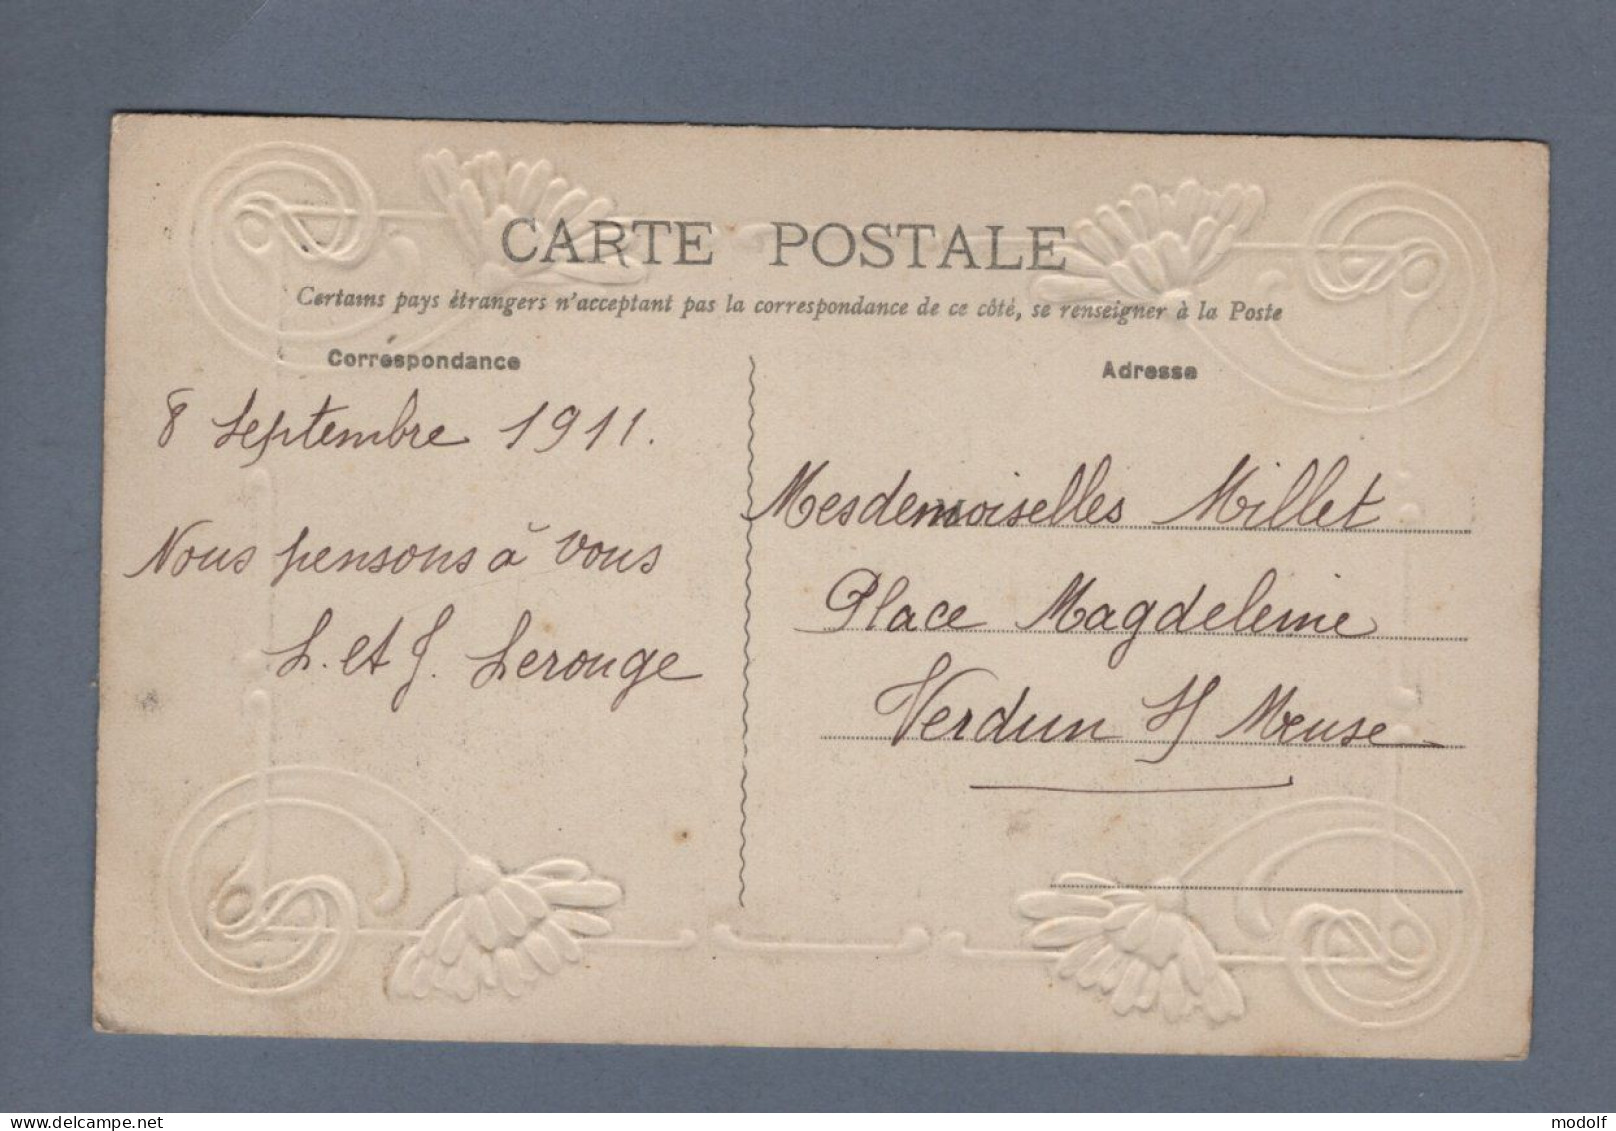 CARTE POSTALE
Certains pays étrangers n'acceptant pas la correspondance de ce côté, se renseigner à la Poste
Correspondance
8 Septembre 1911.
Nous pensons à vous
L. et J. Lerouge
Adresse
Mesdemoiselles Millet
Place Magdeleine
Verdun s/ Meuse
delcampe.net
modolf